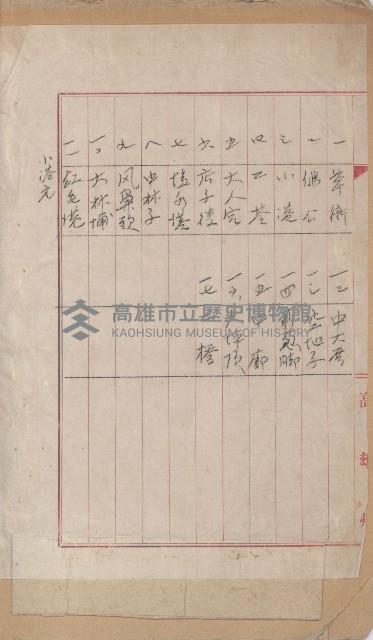 一 草衙
二 佛公
三 小港
四 二苓
五 大人宮
六 店子後
七 塩水港
八 中林子
九 风鼻头
一〇 大林埔
一一 紅毛港
一二 中大厝
一三 空地子
一四 脚
一五 中廍
一六 坪頂
一七 橋
小港庄
高雄州
高雄市立歷史博物館
KAOHSIUNG MUSEUM OF HISTORY